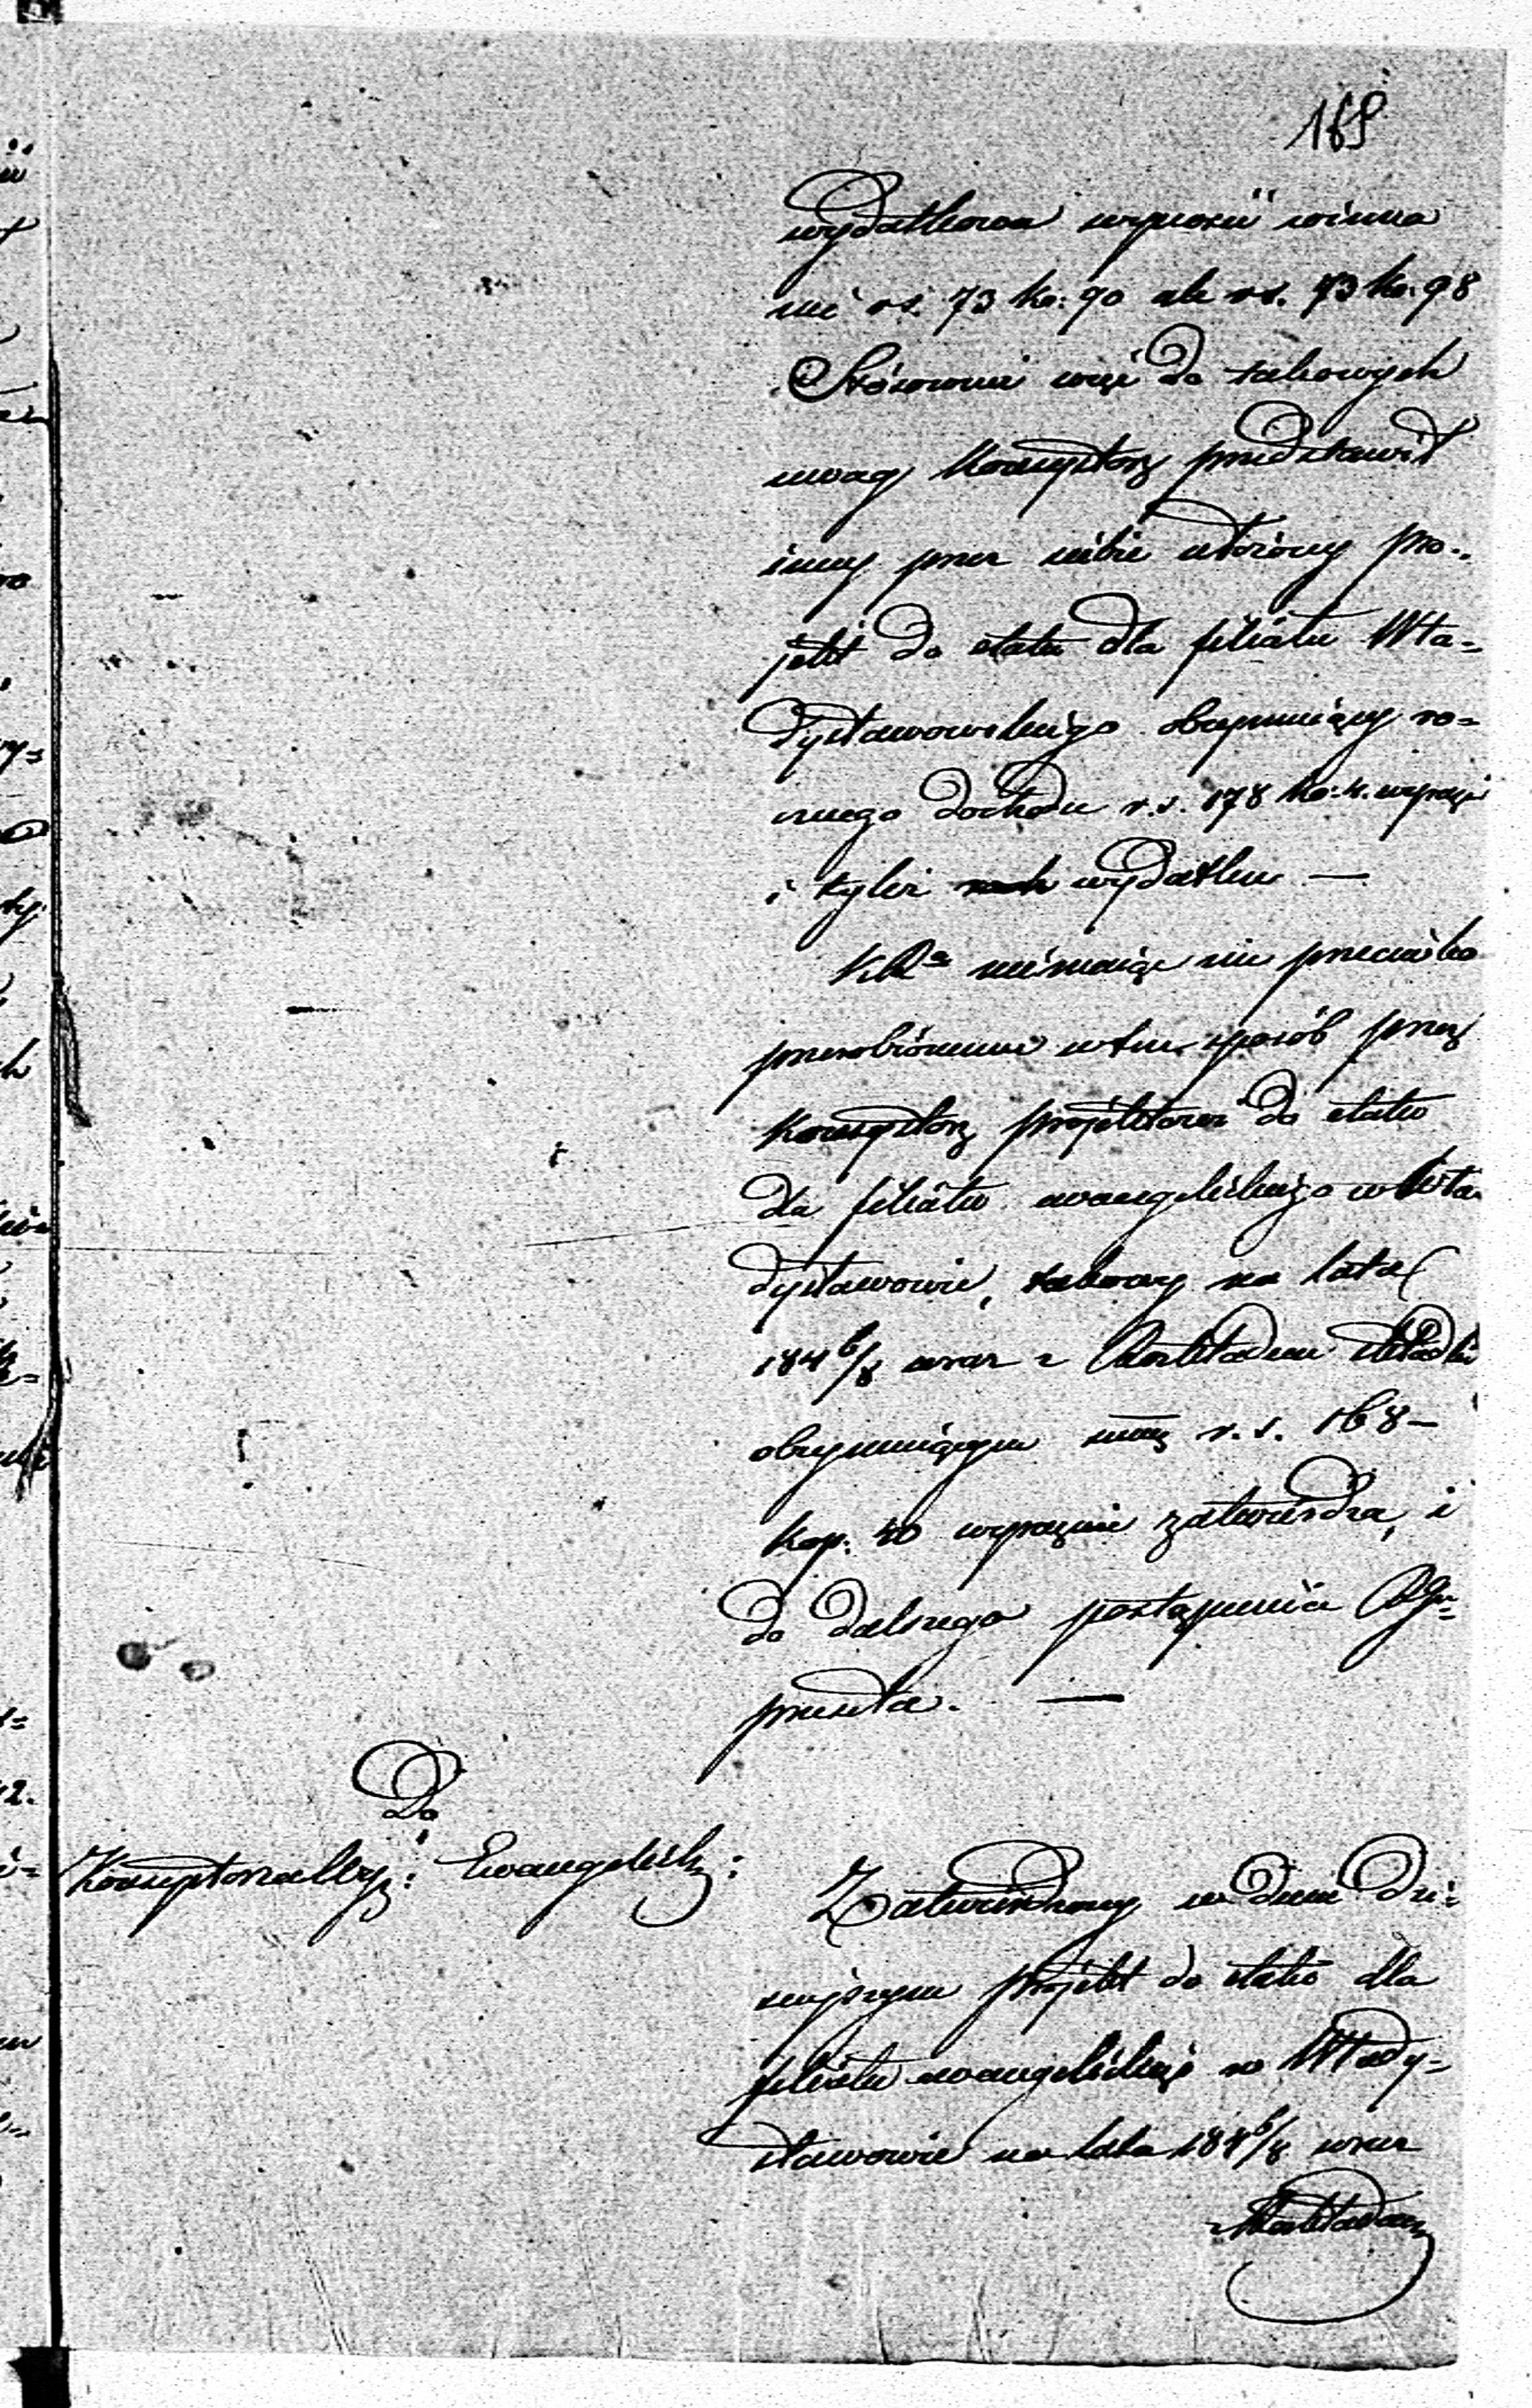 169
wydatkowa wynosić winna
nie rs. 73 ko: 90 ale rs. 73 ko: 98
Stósownie więc do takowych
uwag Konsystorz przedstawił
inny przez siebie ułożony pro-
jekt do etatu dla filiału Wła-
dysławowskiego obejmujący ro-
cznego dochodu r.s. 178 ko: wyraźnie
i tyleż wydatku —
niemając nic przeciwko
przerobionemu w ten sposób przez
Konsystorz projektowi do etatu
dla filiału ewangelickiego w Wła-
dysławowie, takowy na lata
184 6/8 wraz z Rozkładem składki
obejmującym r.s. 168 —
kop. 40 wyraźnie zatwierdza, i
do dalszego postąpienia
przesyła. —
Do
Konsystorza Ewangelick:
Zatwierdzony w dniu dzi-
siejszym projekt do etatu dla
filiału ewangelickiego w Włady-
sławowie na lata 184 6/8 wraz
z Rozkładem